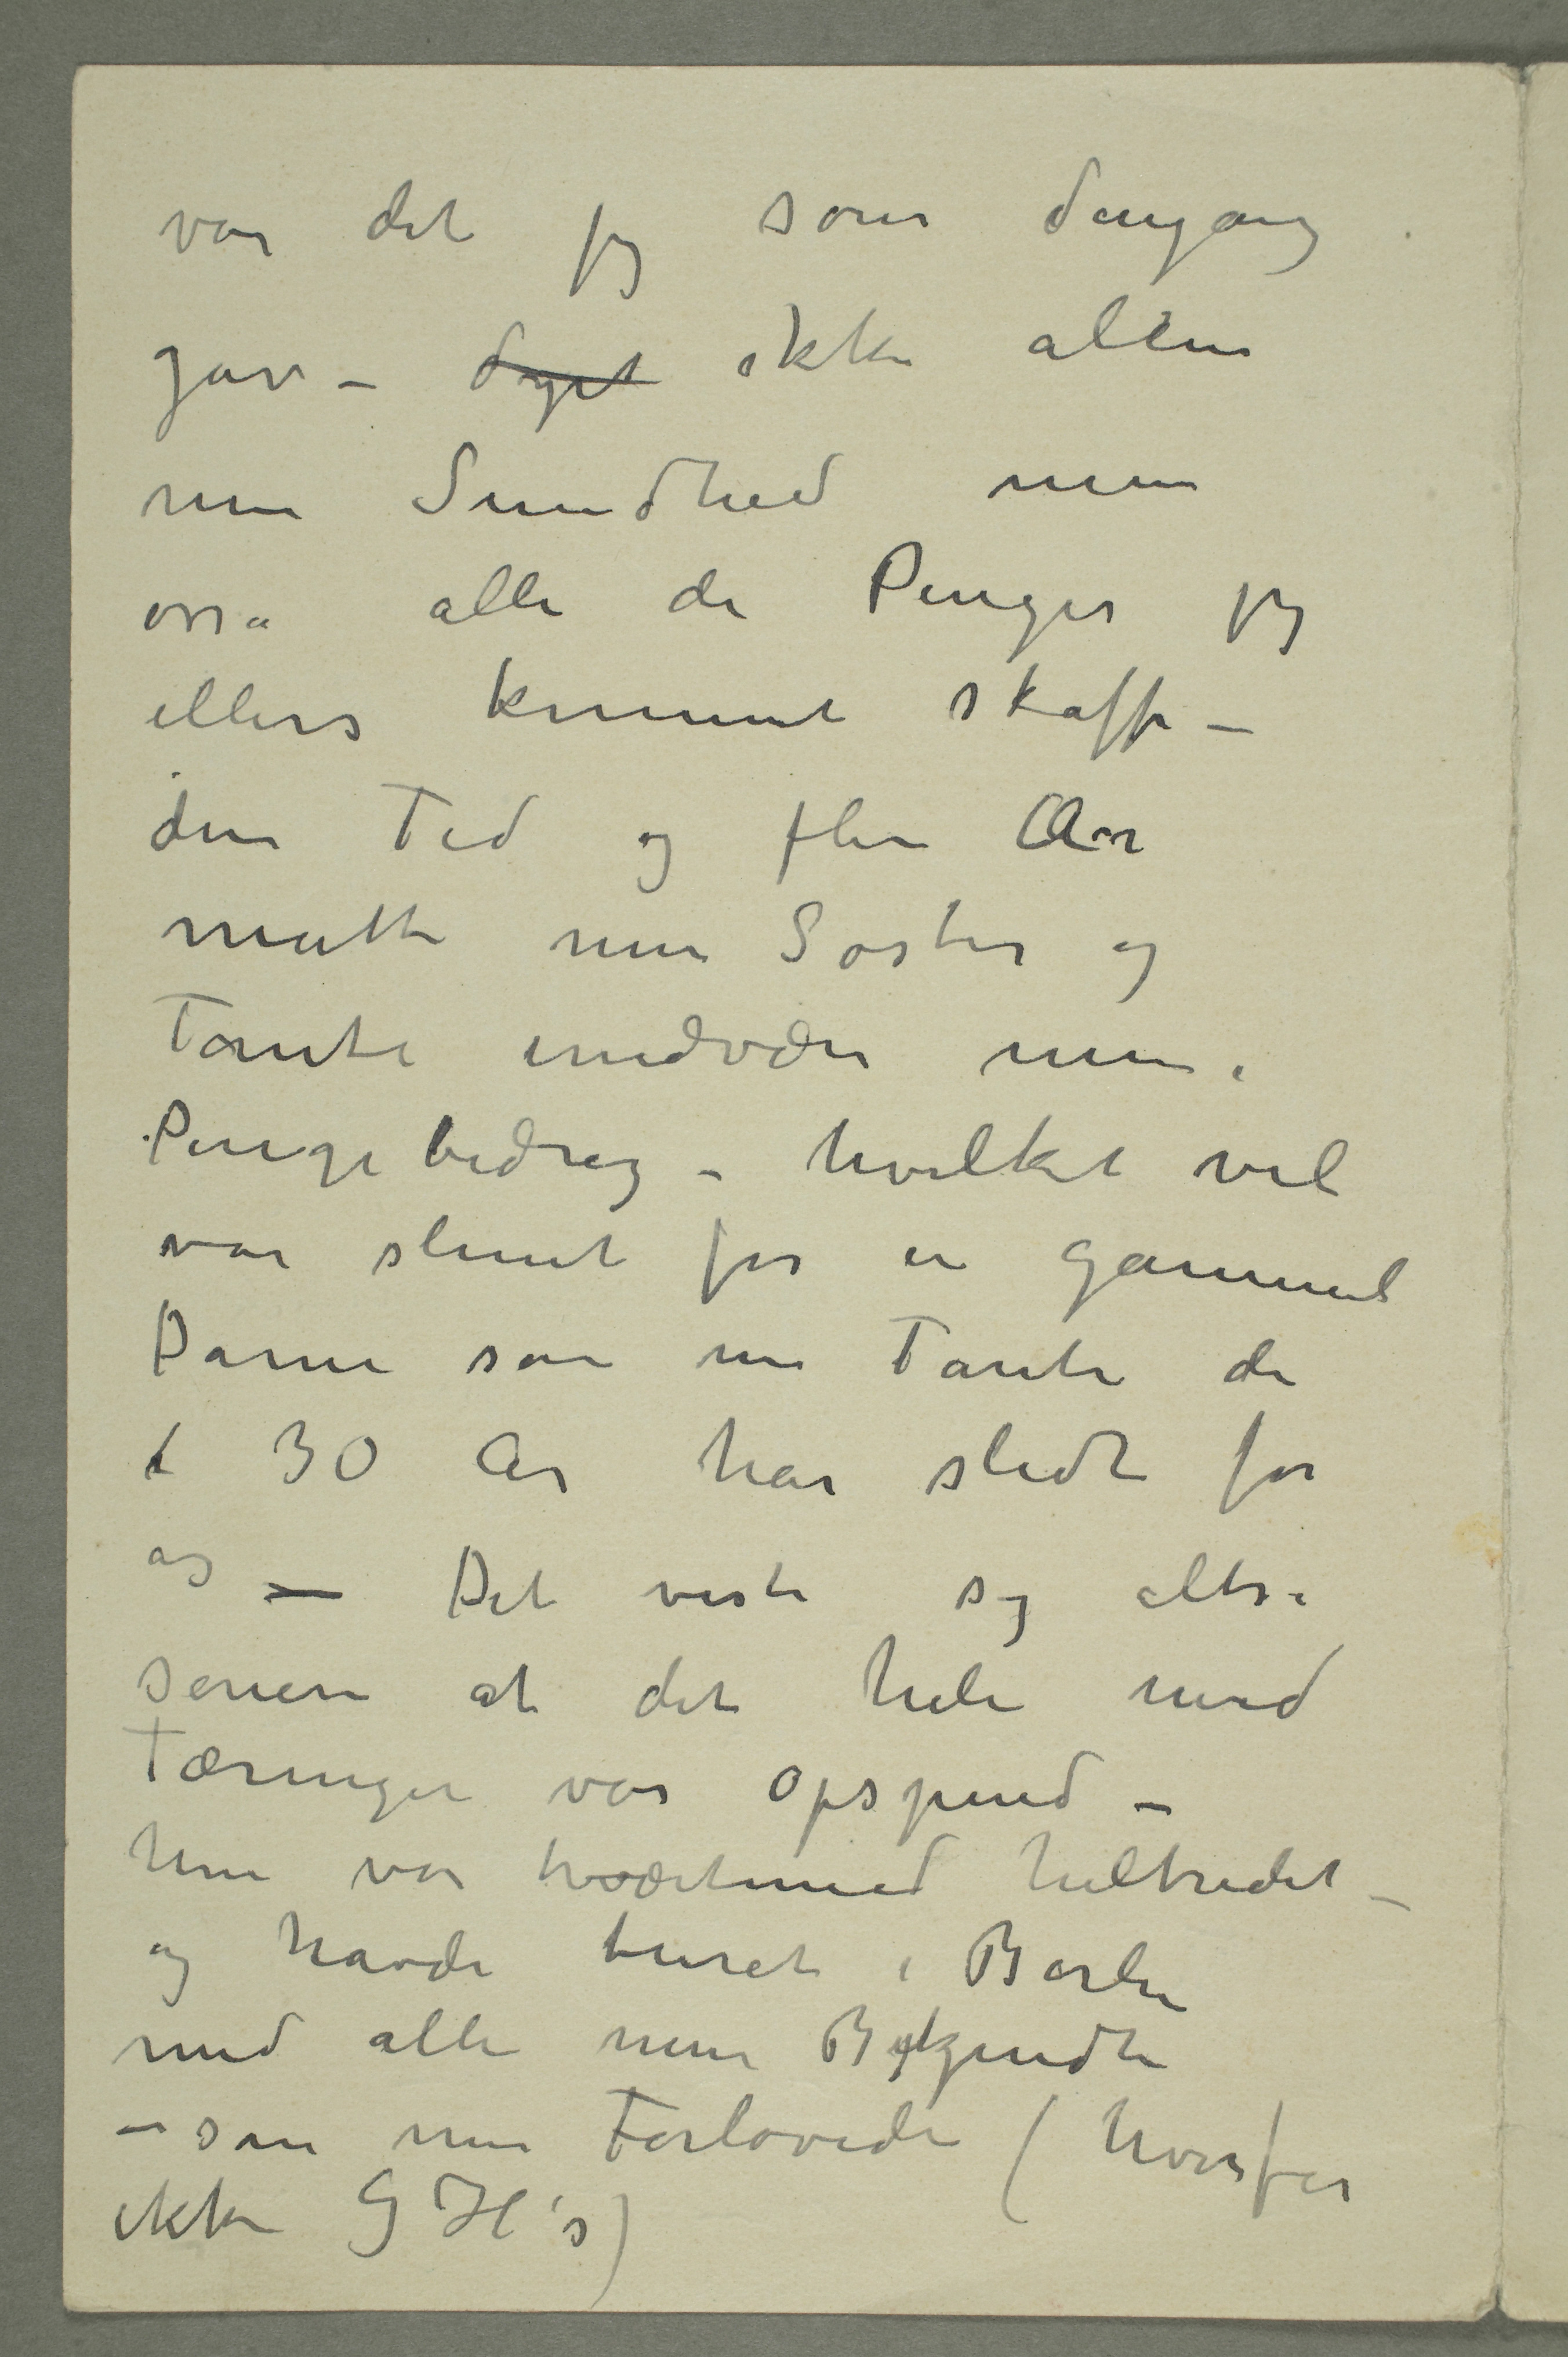 var det jeg som dengang
gav – døget ikke allene
min Sundhed men
osså alle de Penger jeg
ellers kunnet skaffe –
den Tid og flere Aar
måtte min Søster og
Tante undvære mine
Pengebidrag – hvilket vel
var slemt for en gammel
Dame som min Tante der
i 30 År har slidt for
os – Det viste sig altså
senere at det hele med
Tæringen var opspind –
hun var tværtimed helbredet –
og havde turet i Berlin
med alle mine Bekjendte
– som min Forlovede (hvorfor
ikke G H's)